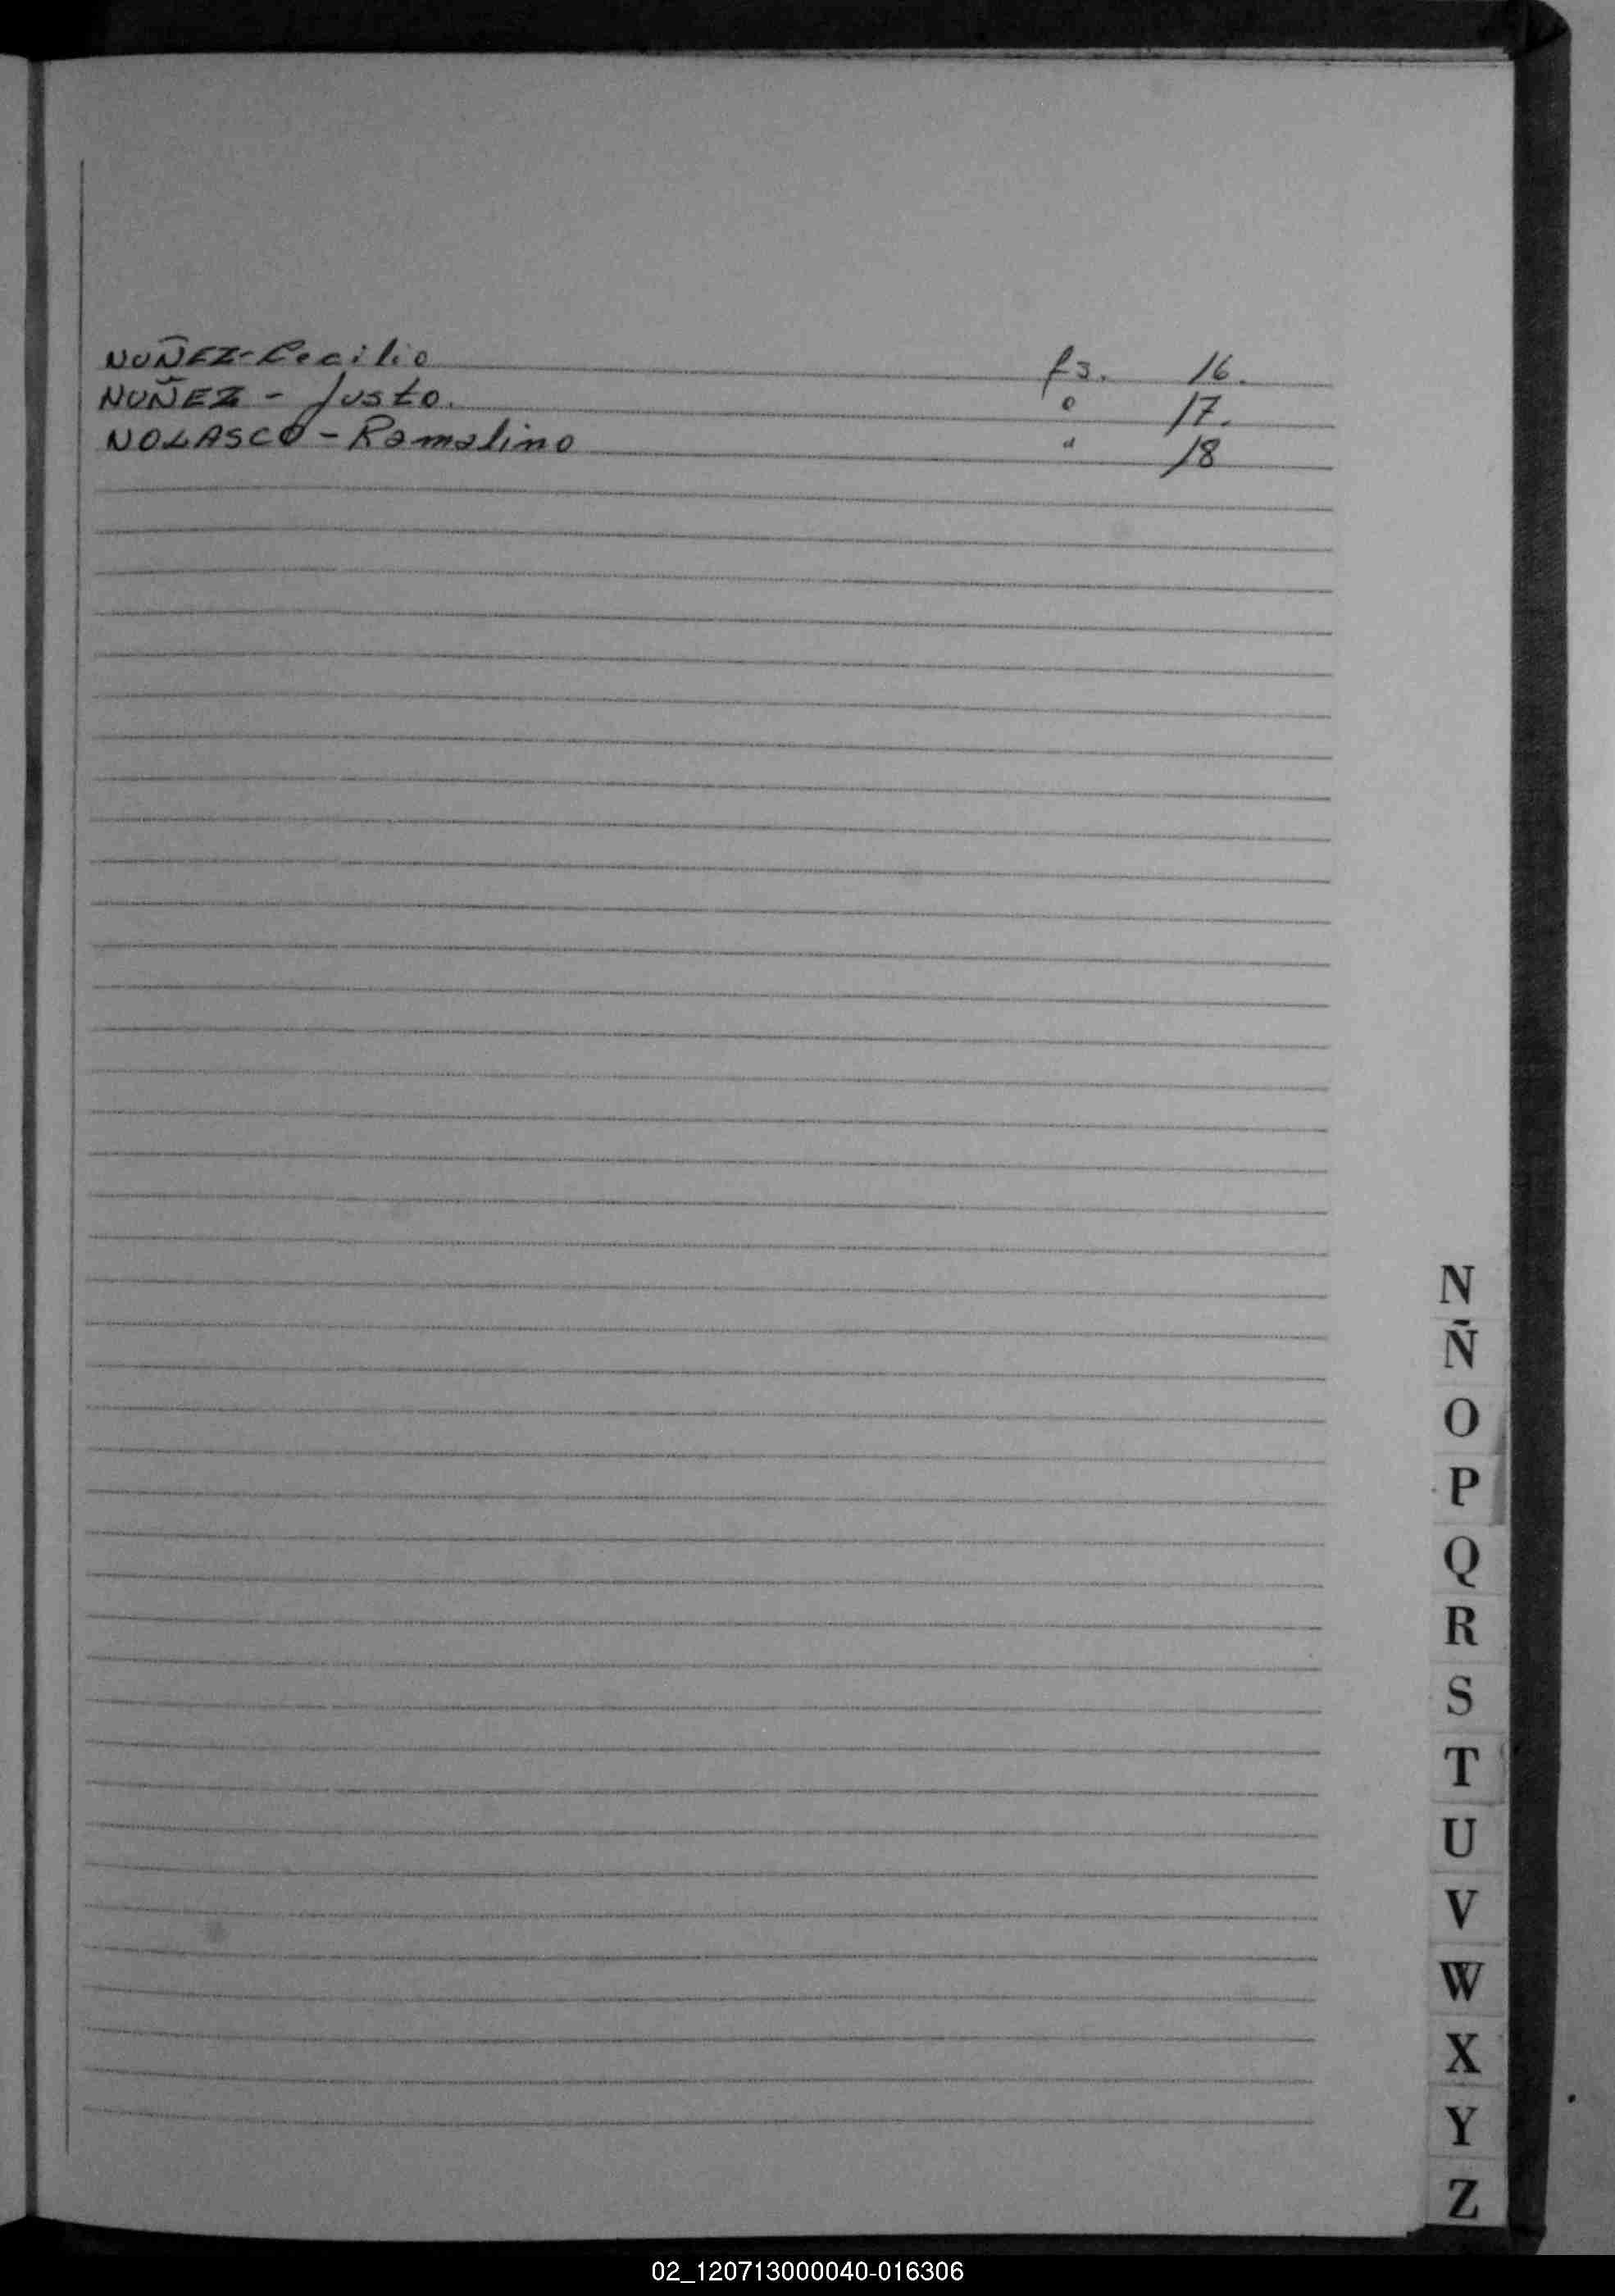 NUÑEZ-Cecilio fs. 16.
NUÑEZ - Justo. " 17.
NOLASCO - Ramalino " 18
N
Ñ
O
P
Q
R
S
T
U
V
W
X
Y
Z
02_120713000040-016306